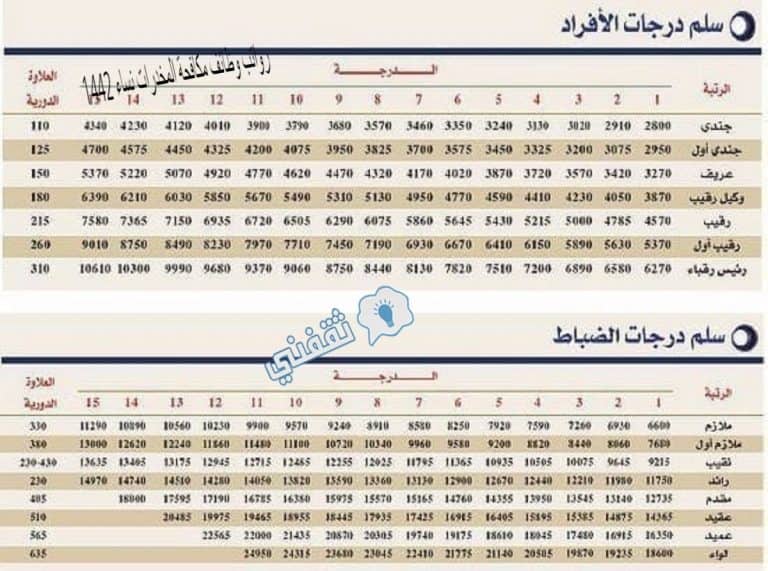 سلم درجات الأفراد
رواتب وظائف مكافحة المخدرات نساء 1442
الرتبة الدرجة العلاوة الدورية
1 2 3 4 5 6 7 8 9 10 11 12 13 14
جندي 2800 2910 3020 3130 3240 3350 3460 3570 3680 3790 3900 4010 4120 4230 4340 110
جندي أول 2950 3075 3200 3325 3450 3575 3700 3825 3950 4075 4200 4325 4450 4575 4700 125
عريف 3270 3420 3570 3720 3870 4020 4170 4320 4470 4620 4770 4920 5070 5220 5370 150
وكيل رقيب 3870 4050 4230 4410 4590 4770 4950 5130 5310 5490 5670 5850 6030 6210 6390 180
رقيب 4570 4785 5000 5215 5430 5645 5860 6075 6290 6505 6720 6935 7150 7365 7580 215
رقيب أول 5370 5630 5890 6150 6410 6670 6930 7190 7450 7710 7970 8230 8490 8750 9010 260
رئيس رقباء 6270 6580 6890 7200 7510 7820 8130 8440 8750 9060 9370 9680 9990 10300 10610 310
ثقفني
سلم درجات الضباط
الرتبة الدرجة العلاوة الدورية
1 2 3 4 5 6 7 8 9 10 11 12 13 14 15
ملازم 6600 6930 7260 7590 7920 8250 8580 8910 9240 9570 9900 10230 10560 10890 11290 330
ملازم أول 7680 8060 8440 8820 9200 9580 9960 10340 10720 11100 11480 11860 12240 12620 13000 380
نقيب 9215 9645 10075 10505 10935 11365 11795 12025 12255 12485 12715 12945 13175 13405 13635 230-430
رائد 11750 11980 12210 12440 12670 12900 13130 13360 13590 13820 14050 14280 14510 14740 14970 230
مقدم 12735 13140 13545 13950 14355 14760 15165 15570 15975 16380 16785 17190 17595 18000 405
عقيد 14365 14875 15385 15895 16405 16915 17425 17935 18445 18955 19465 19975 20485 510
عميد 16350 16915 17480 18045 18610 19175 19740 20305 20870 21435 22000 22565 565
لواء 18600 19235 19870 20505 21140 21775 22410 23045 23680 24315 24950 635